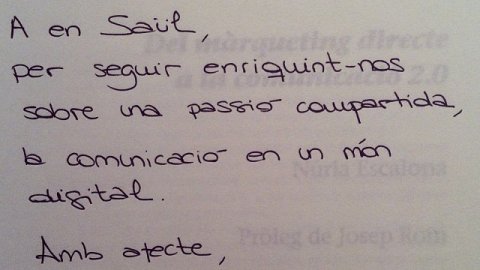 A en Saül,
per seguir enriquint-nos
sobre una passió compartida,
la comunicació en un món
digital.
Amb afecte,
Del màrqueting directe
a la comunicació 2.0
Núria Escalona
Pròleg de Josep Rom